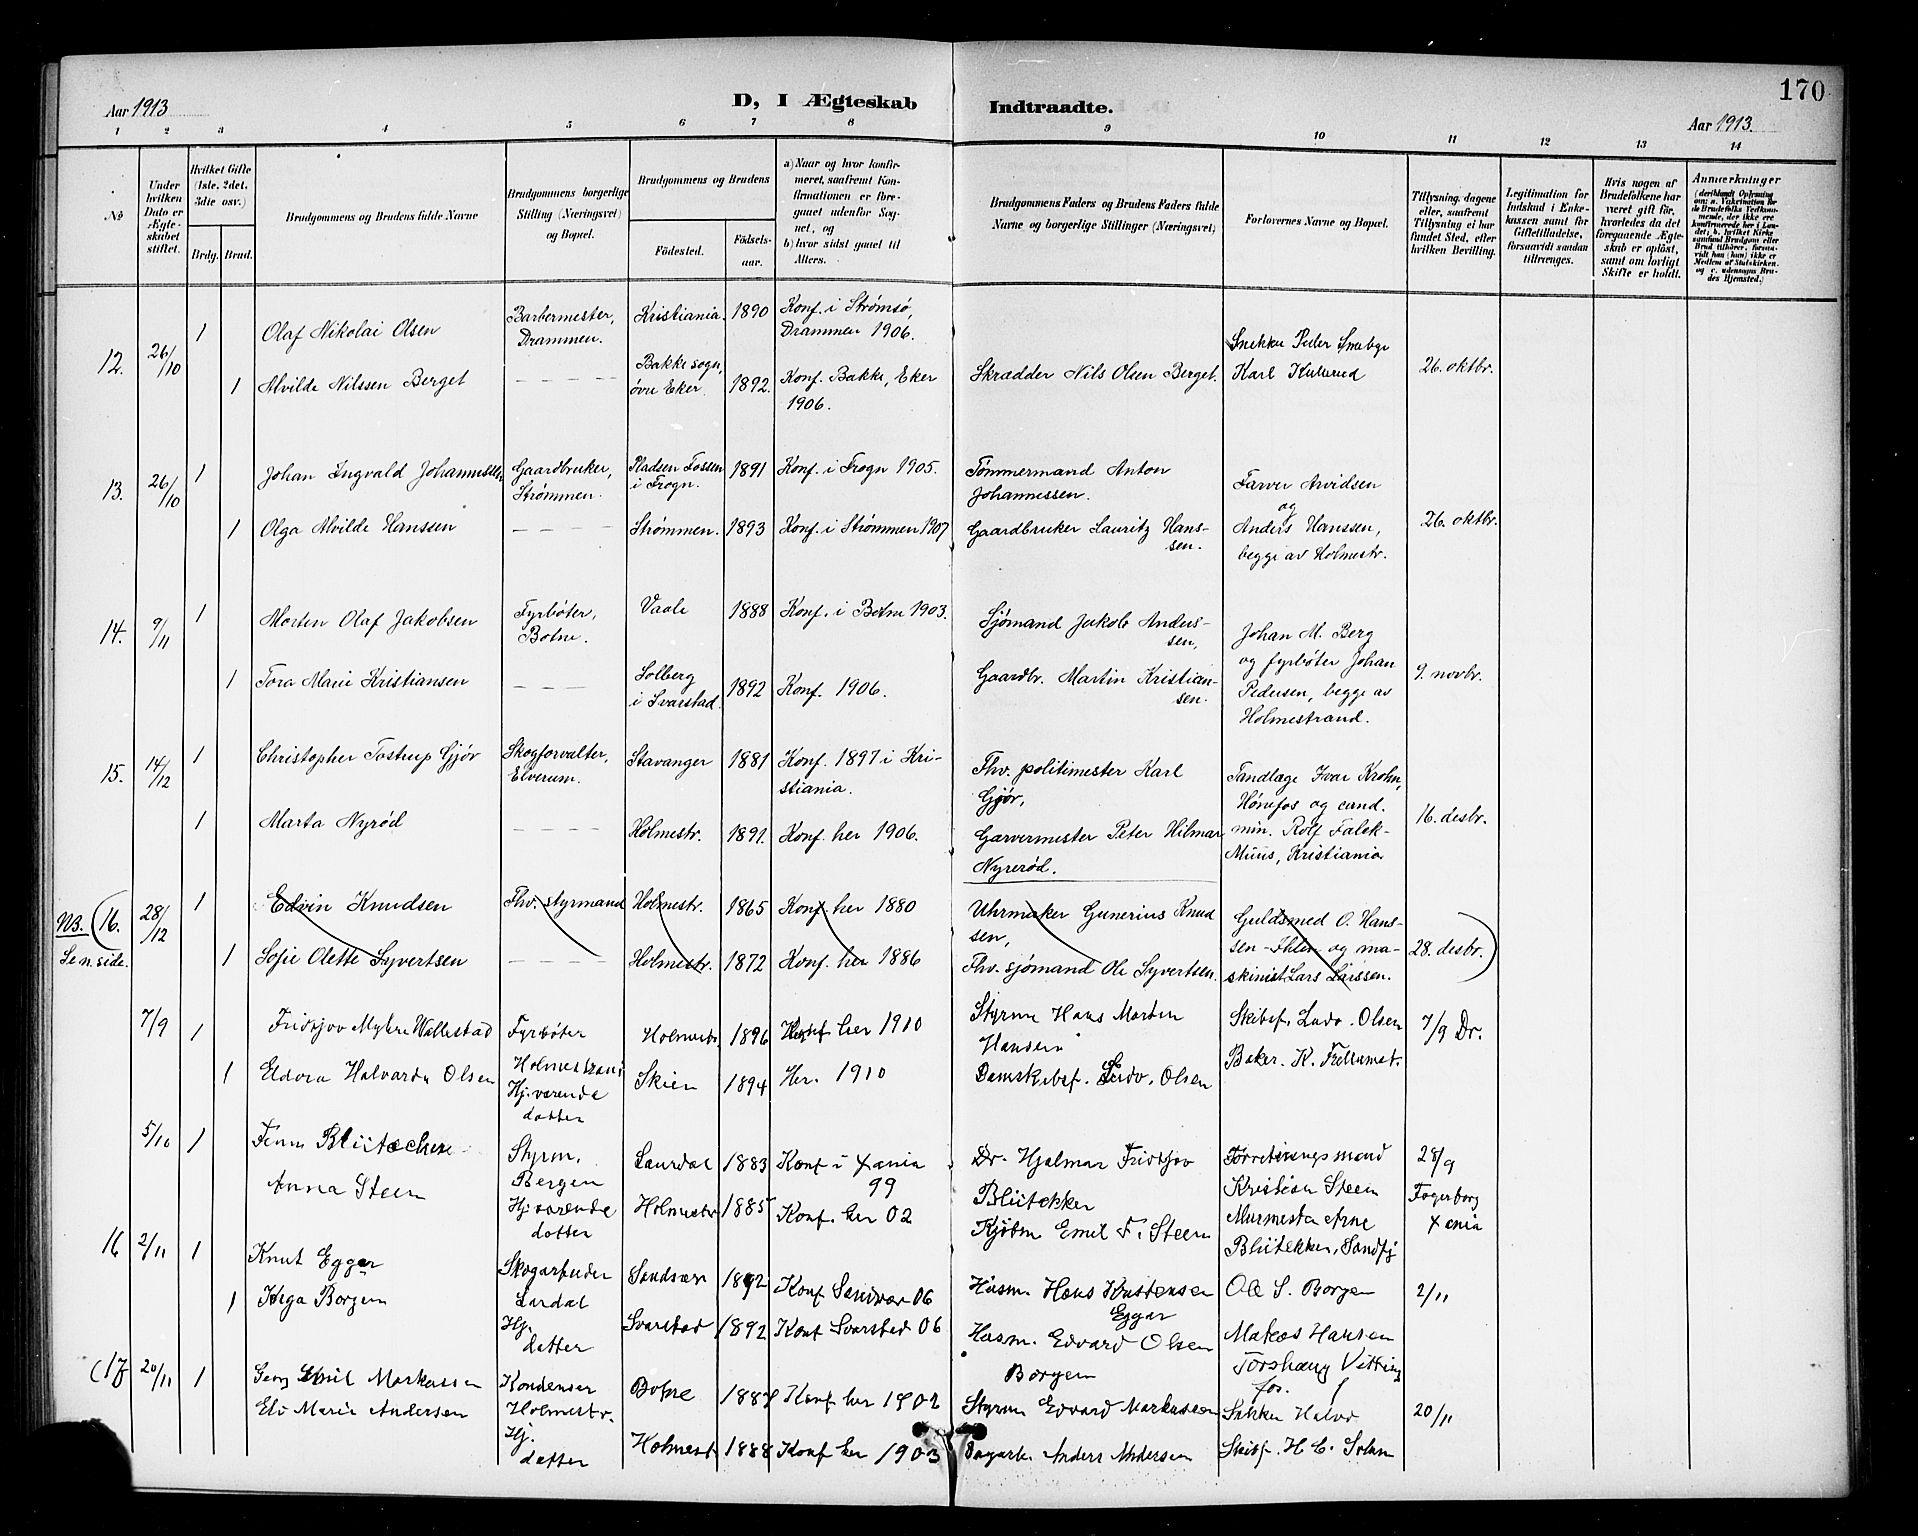 170
Aar 1913
D, I Ægteskab Indtraadte.
Aar 1913.
1 2 3 4 5 6 7 8 9 10 11 12 13 14
No
Under hvilken Dato er Ægteskabet stiftet.
Hvilket Gifte (1ste, 2det, 3die osv.)
Brdg. Brud.
Brudgommens og Brudens fulde Navne
Brudgommens borgerlige Stilling (Næringsvei) og Bopæl.
Brudgommens og Brudens
Fødested.
Fødselsaar.
a) Naar og hvor konfirmeret, saafremt Konfirmationen er foregaaet udenfor Sognet, og
b) hvor sidst gaaet til Alters.
Brudgommens Faders og Brudens Faders fulde Navne og borgerlige Stillinger (Næringsvei)
Forlovernes Navne og Bopæl.
Tillysning, dagene eller, saafremt Tillysning ei har fundet Sted, efter hvilken Bevilling.
Legitimation for Indskud i Enkekassen samt for Giftetilladelse, forsaavidt saadan tiltrænges.
Hvis nogen af Brudefolkene har været gift før, hvorledes da det foregaaende Ægteskab er opløst, samt om lovligt Skifte er holdt.
Anmærkninger
12. 26/10 1 Olaf Nikolai Olsen
Barbermester, Drammen.
Kristiania. 1890
Konf. i Strømsø, Drammen 1906.
Snekker Peder
1 Alvilde Nilssen Berget
Bakke sogn, øvre Eker. 1892.
Konf. Bakke, Eker 1906.
Skrædder Nils Olsen Berget.
Karl
26. oktbr.
13. 26/10 1 Johan Ingvald Johannessen
Gaardbruker, Strømmen.
Pladsen Fossen i Frogn. 1891
Konf. i Frogn 1905.
Tømmermand Anton Johannessen.
Farver Arvidsen
og
Anders Hanssen,
begge av Holmestr.
26. oktbr.
1 Olga Alvilde Hanssen
Strømmen. 1893
Konf. i Strømmen 1907
Gaardbruker Lauritz Hanssen.
14. 9/11 1 Morten Olaf Jakobsen
Fyrbøter, Botne.
Vaale 1888
Konf. i Botne 1903.
Sjømand Jakob Anderssen,
Johan M. Berg
og fyrbøter Johan
Pedersen, begge av
Holmestrand.
9. novbr.
1 Tora Marie Kristiansen
Solberg i Svarstad. 1892
Konf. 1906.
Gaardbr. Martin Kristiansen.
15. 14/12 1 Christopher Tostrup Gjør
Skogforvalter, Elverum.
Stavanger 1881
Konf. 1897 i Kristiania.
Fhv. politimester Karl Gjør,
Tandlæge Ivar Krohn,
Hønefos og cand.
min. Rolf Falck-
Muus, Kristiania
16. desbr.
1 Marta Nyrød
Holmestr. 1891.
Konf. her 1906.
Garvermester Peter Hilmar Nyrerød.
NB. Se n. side.
(16. 28/12 1 Edvin Knudsen
Fhv. styrmand
Holmestr. 1865
Konf. her 1880
Uhrmaker Gunerius Knudsen,
Guldsmed O. Hanssen-Ihlen og maskinist Lars Larssen.
28. desbr.)
1 Sofie Olette Syvertsen
Holmestr. 1872
Konf. her 1886
Fhv. sjømand Ole Syvertsen.
7/9 1 Fridtjov Myhre Wallestad
Fyrbøter Holmestrand
Holmestr. 1896
Konf her 1910
Styrm Hans Morten Hansen
Skibsf. Ludv. Olsen
7/9 Dr.
1 Eldora Halvarda Olsen
Hj.værende datter
Skien 1894
Her. 1910
Damskibsf. Ludv. Olsen
Baker. K.
5/10 1 Finn Blütecher
Styrm, Bergen
Laurdal 1883
Konf i Xania 99
Dr. Hjalmar Fridtjov Blütekker
Forretningsmand Kristian Steen
28/9 Fagerborg Xania
Anna Steen
Hj.værende datter
Holmestr 1885
Konf. her 02
Kjøbm Emil F. Steen
Murmester Arne Blütekker, Sandfj
16 2/11 1 Knut Eggar
Skogarbeider Lardal
Sandsvær 1892
Konf Sandsvær 06
Husm. Hans Kristensen Eggar
Ole S. Borgen
2/11
1 Helga Borgen
Hj. datter
Svarstad 1892
Konf Svarstad 06
Husm. Edvard Olsen Borgen
Makos Hansen
(17 20/11 1 Georg Emil Markussen
Kondensør Holmestr.
Botne 1887
Konf her 1902
Styrm Edvard Markussen
Snekker Halvor
20/11
Eli Marie Andersen
Hj. datter
Holmest 1888
Konf her 1903
Dagarb. Anders Andersen
Skibsf. H. C.